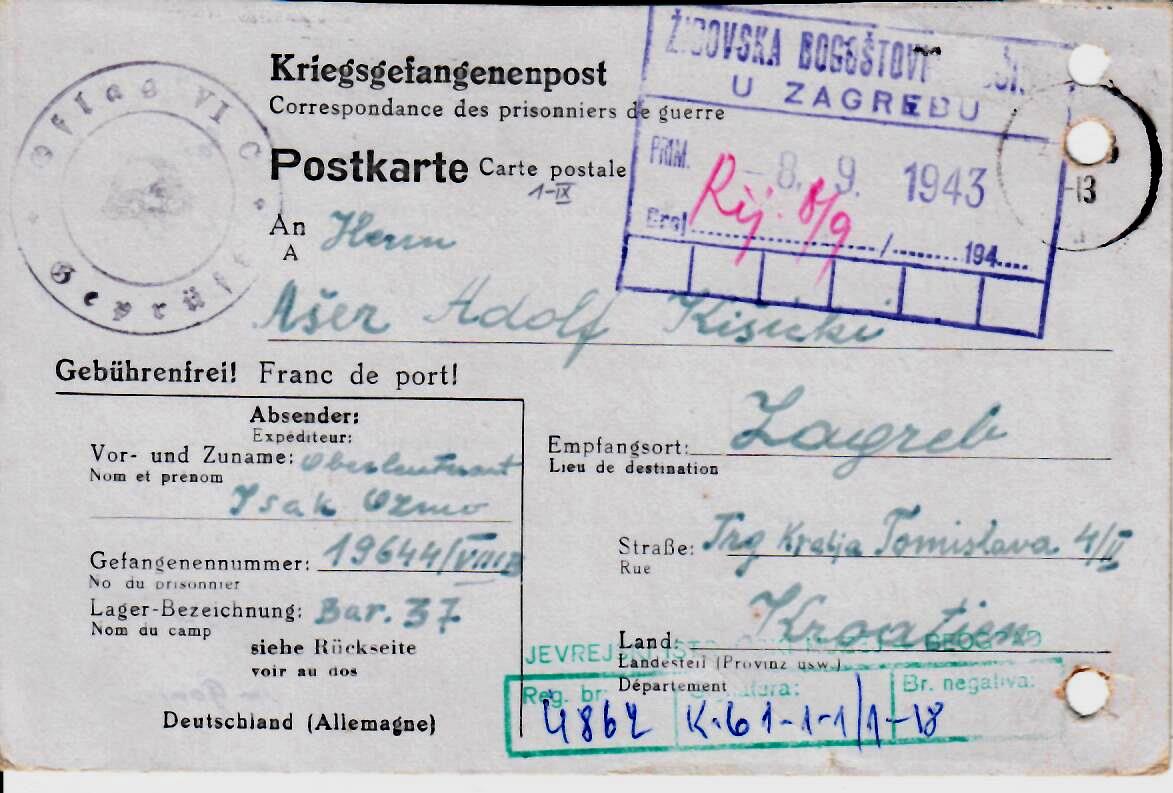 Kriegsgefangenenpost
Correspondance des prisonniers de guerre
Postkarte Carte postale
1-IX
Oflag VI C
Geprüft
ŽIDOVSKA BOGOŠTOVNA
U ZAGREBU
PRIM. - 8. 9. 1943
Rij. 8/9
/ 194
-13
An Herrn
A
Ašer Adolf Kišicki
Gebührenfrei! Franc de port!
Absender:
Expéditeur:
Vor- und Zuname: Oberleutnant
Nom et prenom
Isak Ozmo
Gefangenennummer: 19644/VIIIB
No du prisonnier
Lager-Bezeichnung: Bar. 37
Nom du camp
siehe Rückseite
voir au dos
Deutschland (Allemagne)
Empfangsort: Zagreb
Lieu de destination
Straße: Trg Kralja Tomislava 4/II
Rue
Land: Kroatien
Landesteil (Provinz usw.)
Département
BEOGRAD
Reg. br.
4862
K-61-1-1/1-18
Br. negativa: